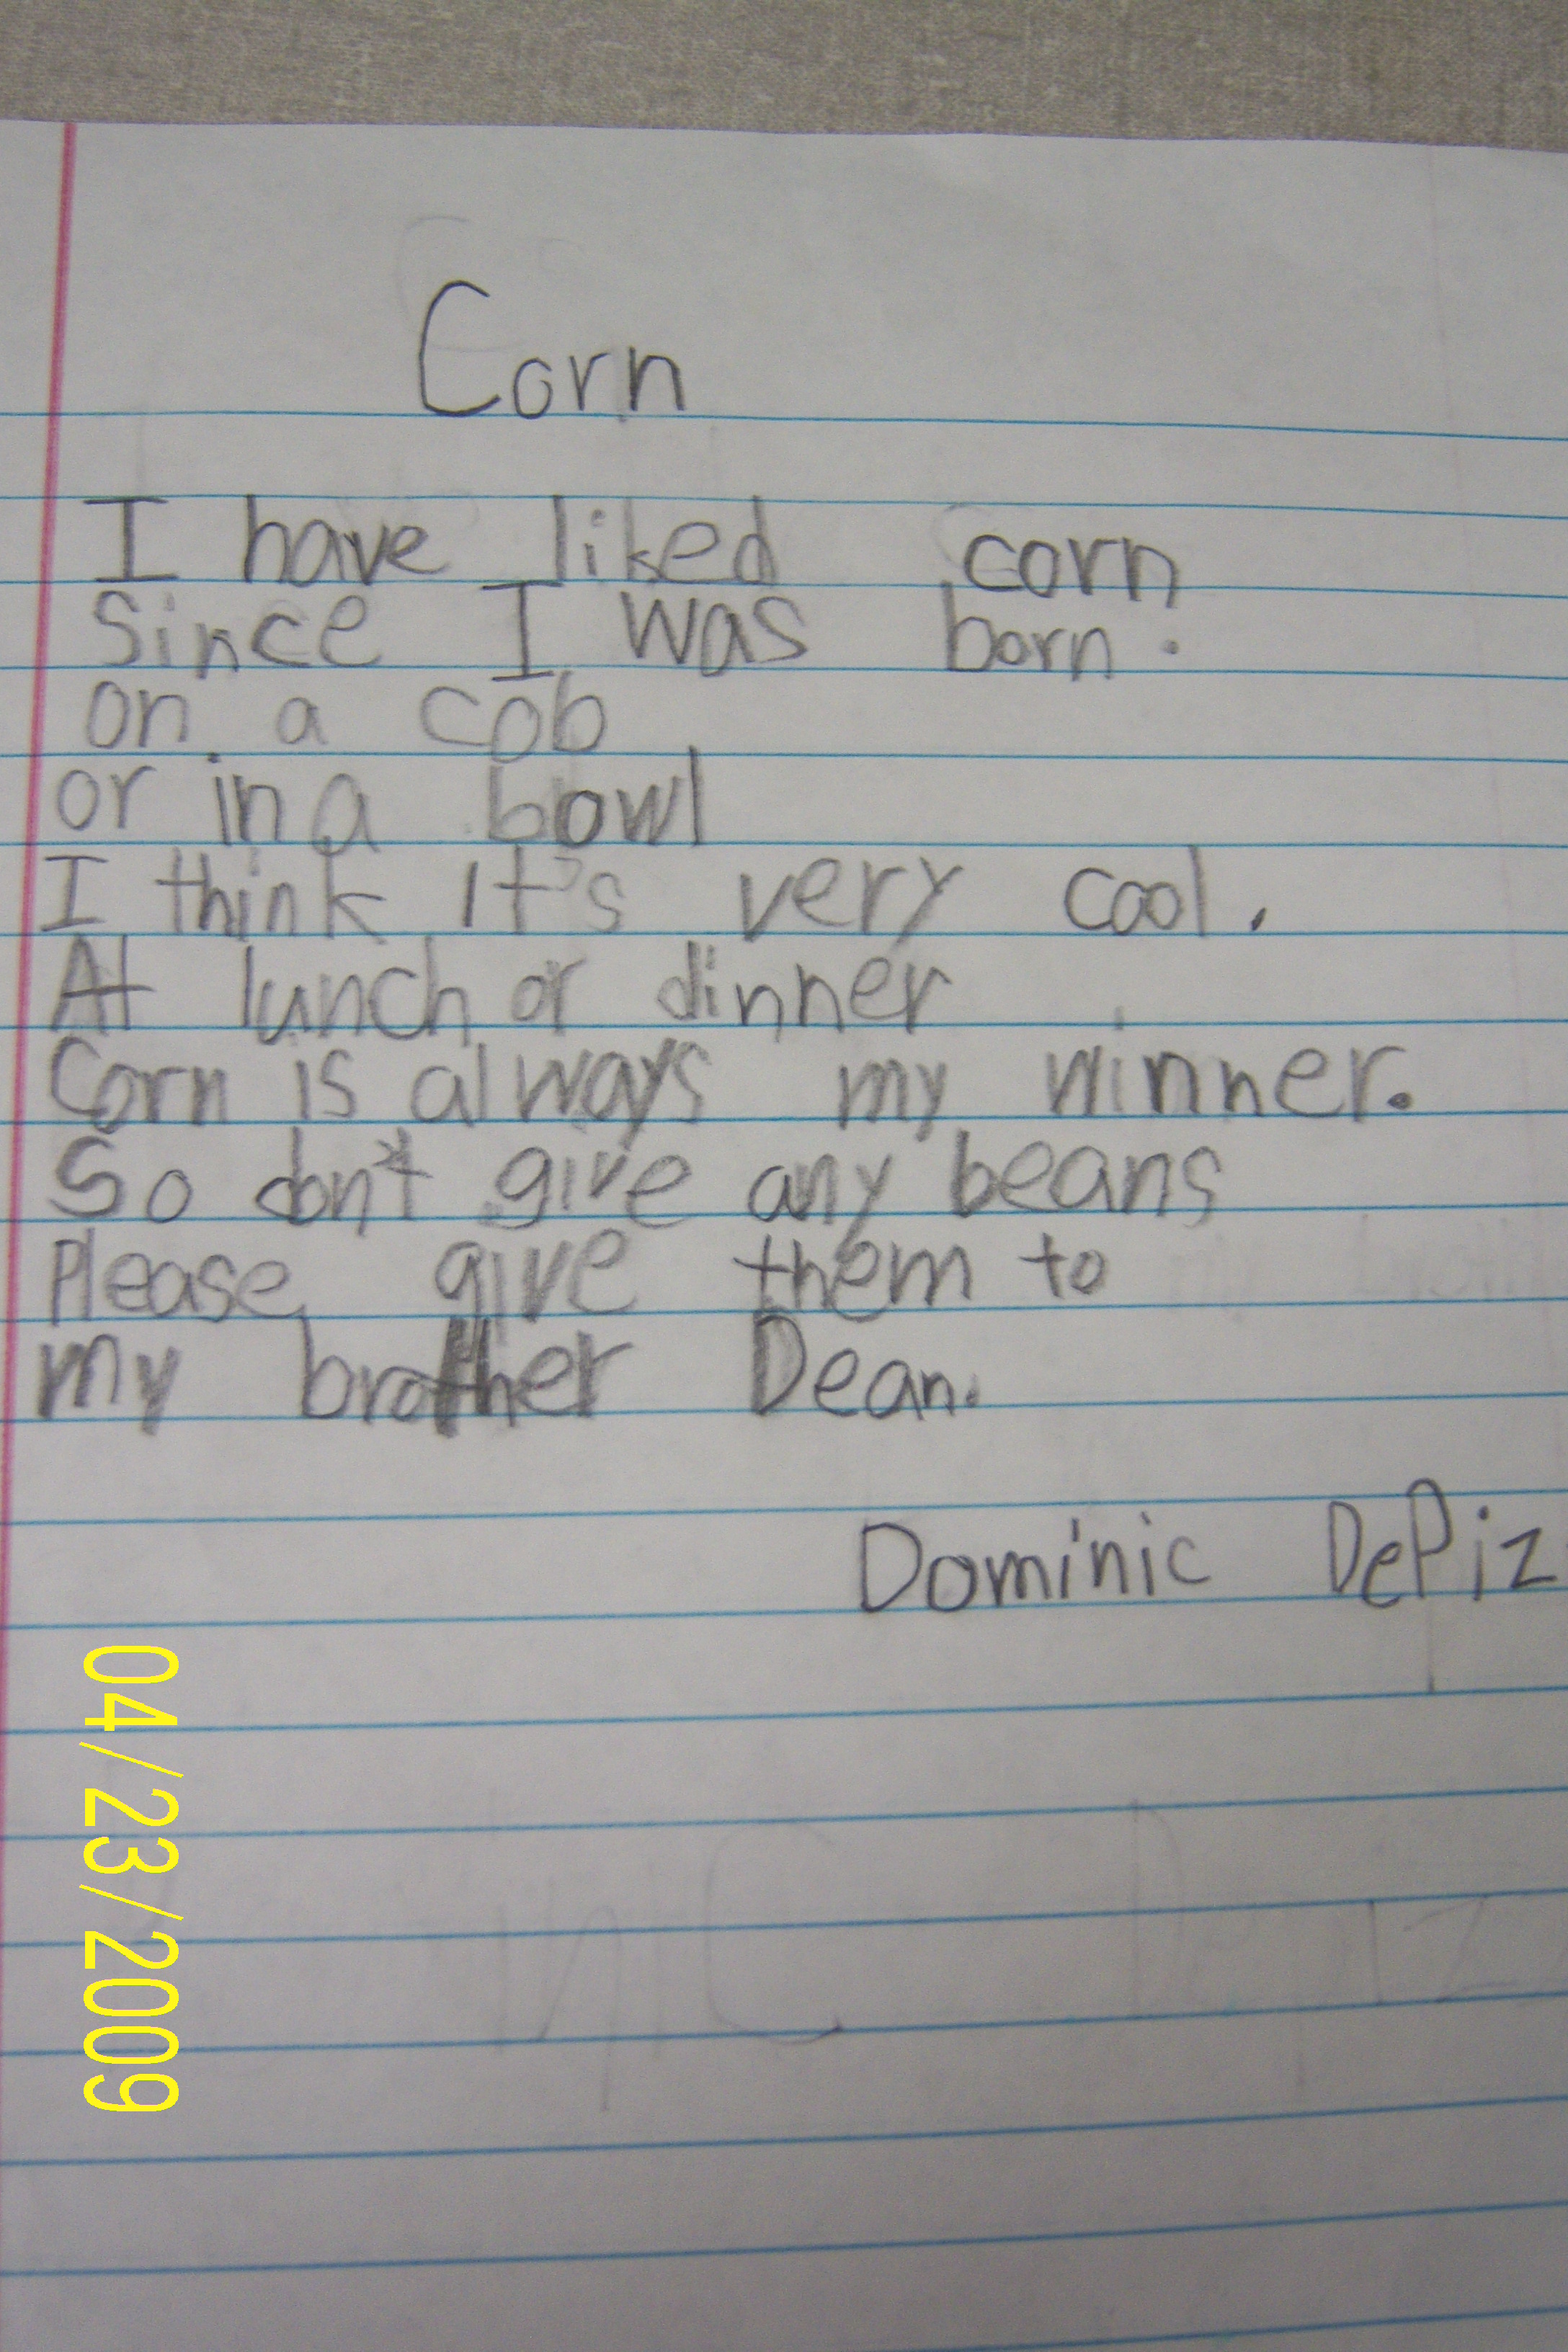 Corn
I have liked corn
since I was born.
on a cob
or in a bowl
I think it's very cool.
At lunch or dinner
Corn is always my winner.
So don't give any beans
Please give them to
my brother Dean.
Dominic DePiz
04/23/2009